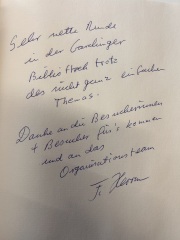 Sehr nette Runde
in der Garchinger
Bibliothek trotz
des nicht ganz einfachen
Themas.
Danke an die Besucherinnen
+ Besucher für's kommen
und an das
Organisationsteam